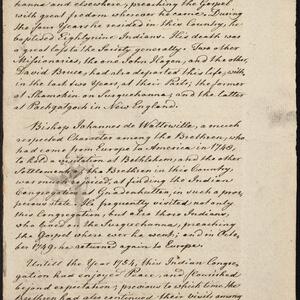 hanna and elsewhere, preaching the Gospel
with great freedom wherever he came. During
the four Years he resided in this Country, he
baptised Eighty nine Indians. His death was
a great loss to the Society generally. Two other
Missionaries, the one John Hagen, and the other
David Bruce had also departed this life, with-
in the last two Years, at their Posts; the former
at Shamokin on Susquehanna, and the latter
at Pachgatgoch in New England.
Bishop Johannes de Watteville, a much
respected Character among the Brethren, who
had come from Europe to America in 1748,
to hold a visitation at Bethlehem, and the other
Settlements of the Brethren in this Country
was much rejoiced, at finding the Indian
Congregation at Gnadenhutten, in such a pros-
perous state. He frequently visited not only
this Congregation, but also those Indians,
who lived on the Susquehanna, preaching
the Gospel where ever he went; and in Octo-
ber 1749, he returned again to Europe.
Untill the Year 1754, this Indian Congre-
gation had enjoyed Peace, and flourished
beyond expectation; previous to which the
Brethren had also continued their visits among